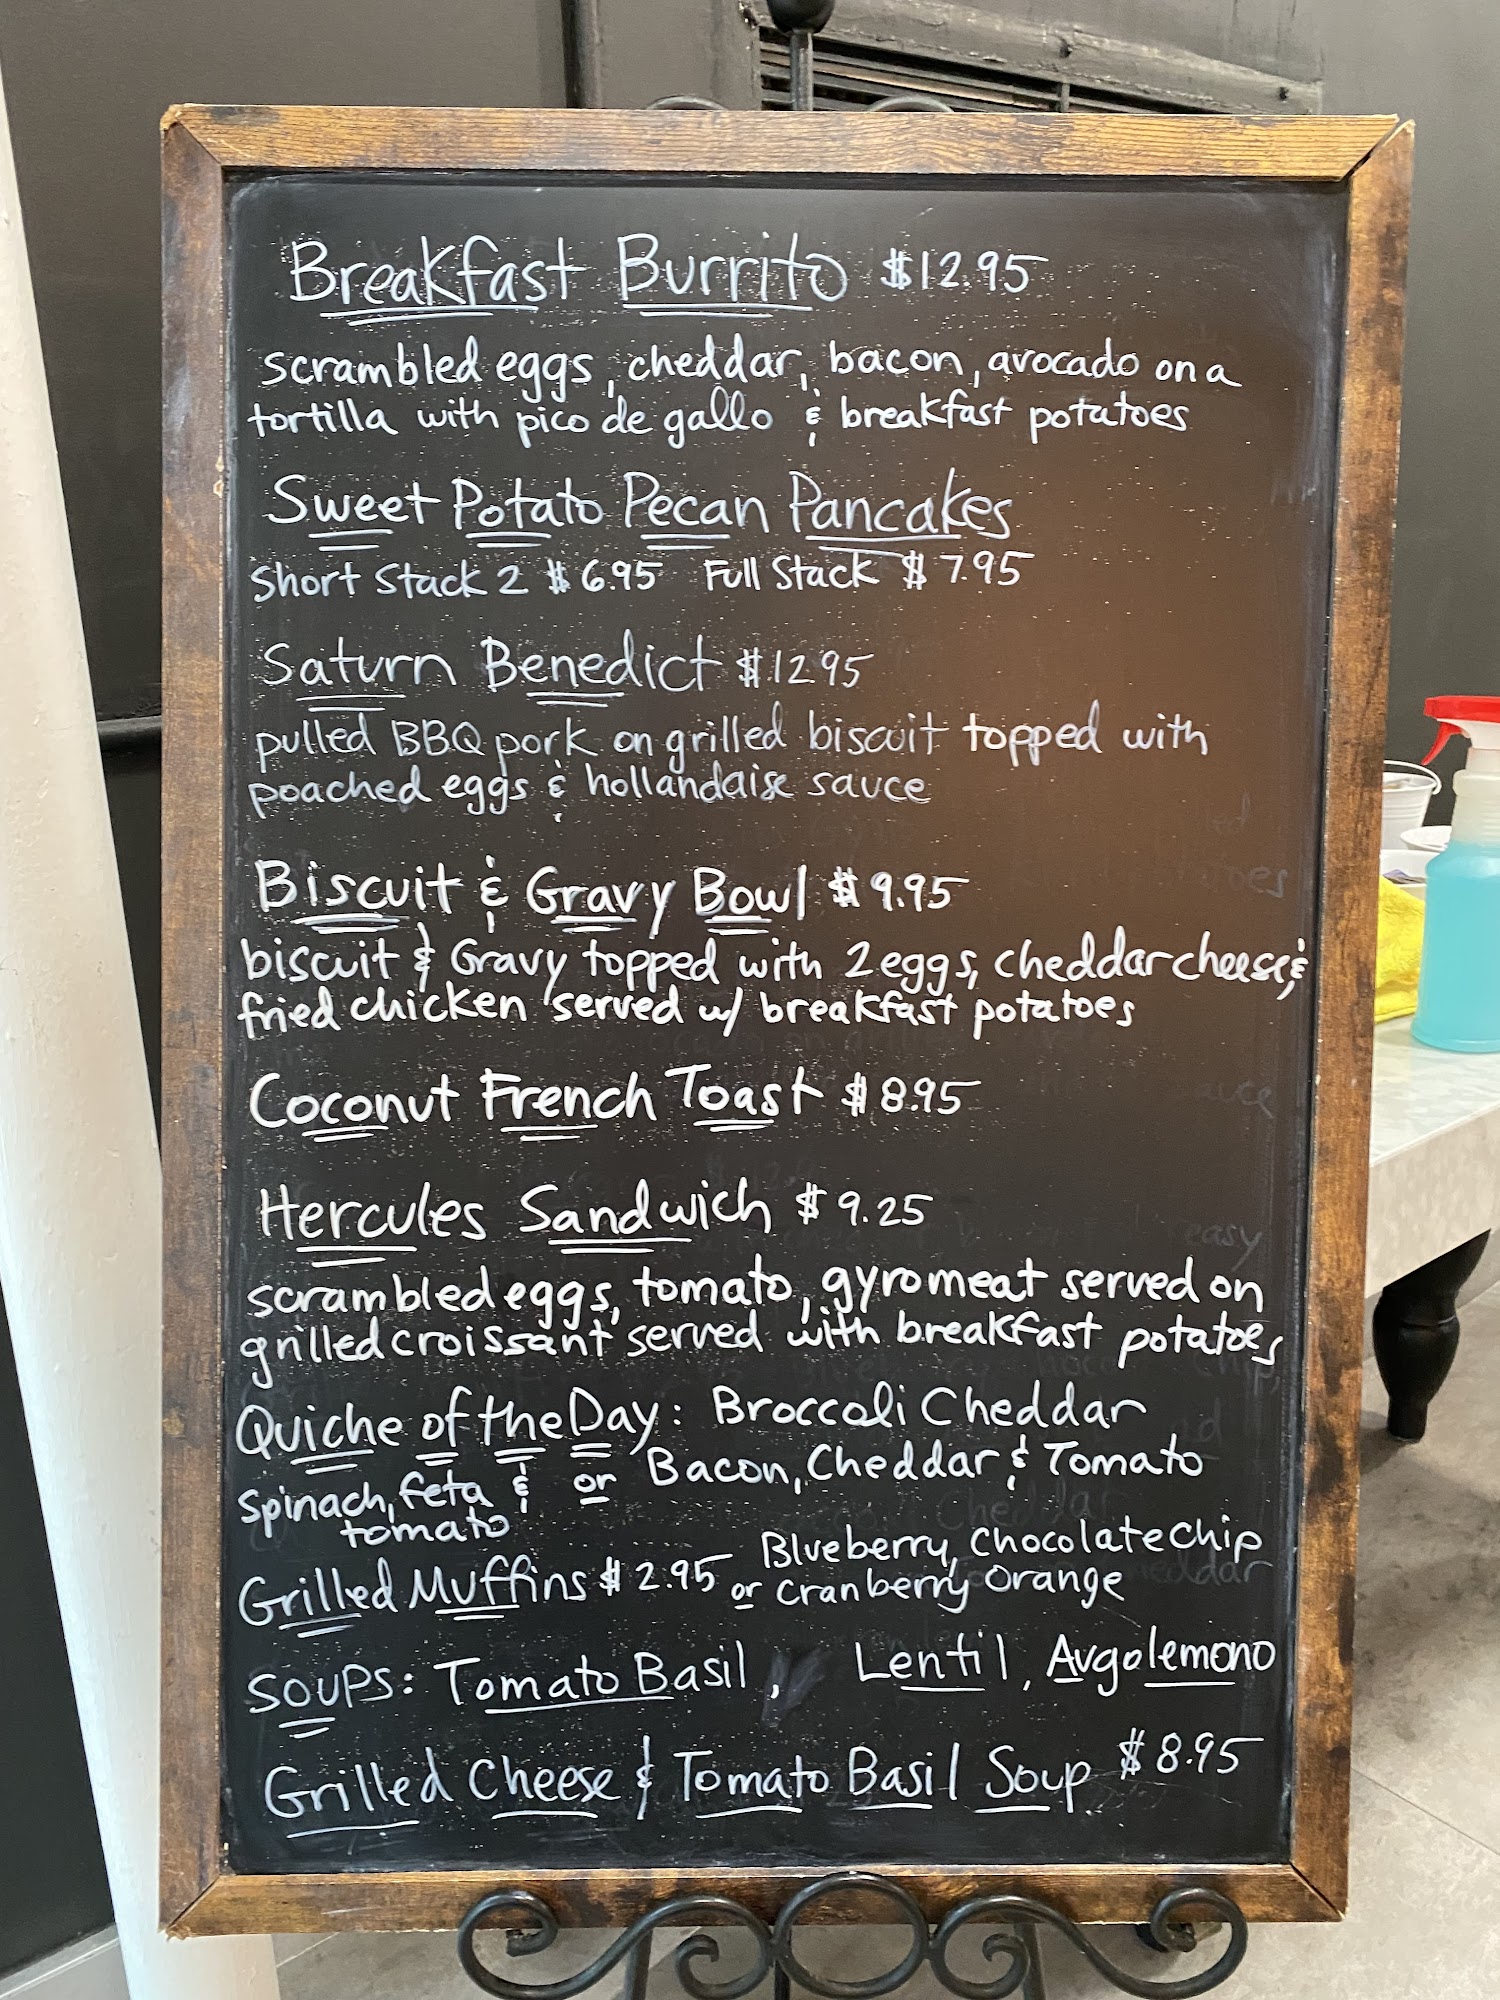 Breakfast Burrito $12.95
scrambled eggs, cheddar, bacon, avocado on a
tortilla with pico de gallo & breakfast potatoes
Sweet Potato Pecan Pancakes
Short Stack 2 $6.95 Full Stack $7.95
Saturn Benedict $12.95
pulled BBQ pork on grilled biscuit topped with
poached eggs & hollandaise sauce
Biscuit & Gravy Bowl $9.95
biscuit & Gravy topped with 2 eggs, cheddar cheese, &
fried chicken served w/ breakfast potatoes
Coconut French Toast $8.95
Hercules Sandwich $9.25
scrambled eggs, tomato, gyro meat served on
grilled croissant served with breakfast potatoes
Quiche of the Day: Broccoli Cheddar
Spinach, feta & tomato or Bacon, Cheddar & Tomato
Grilled Muffins $2.95 Blueberry, Chocolate Chip
or Cranberry Orange
SOUPS: Tomato Basil, Lentil, Avgolemono
Grilled Cheese & Tomato Basil Soup $8.95